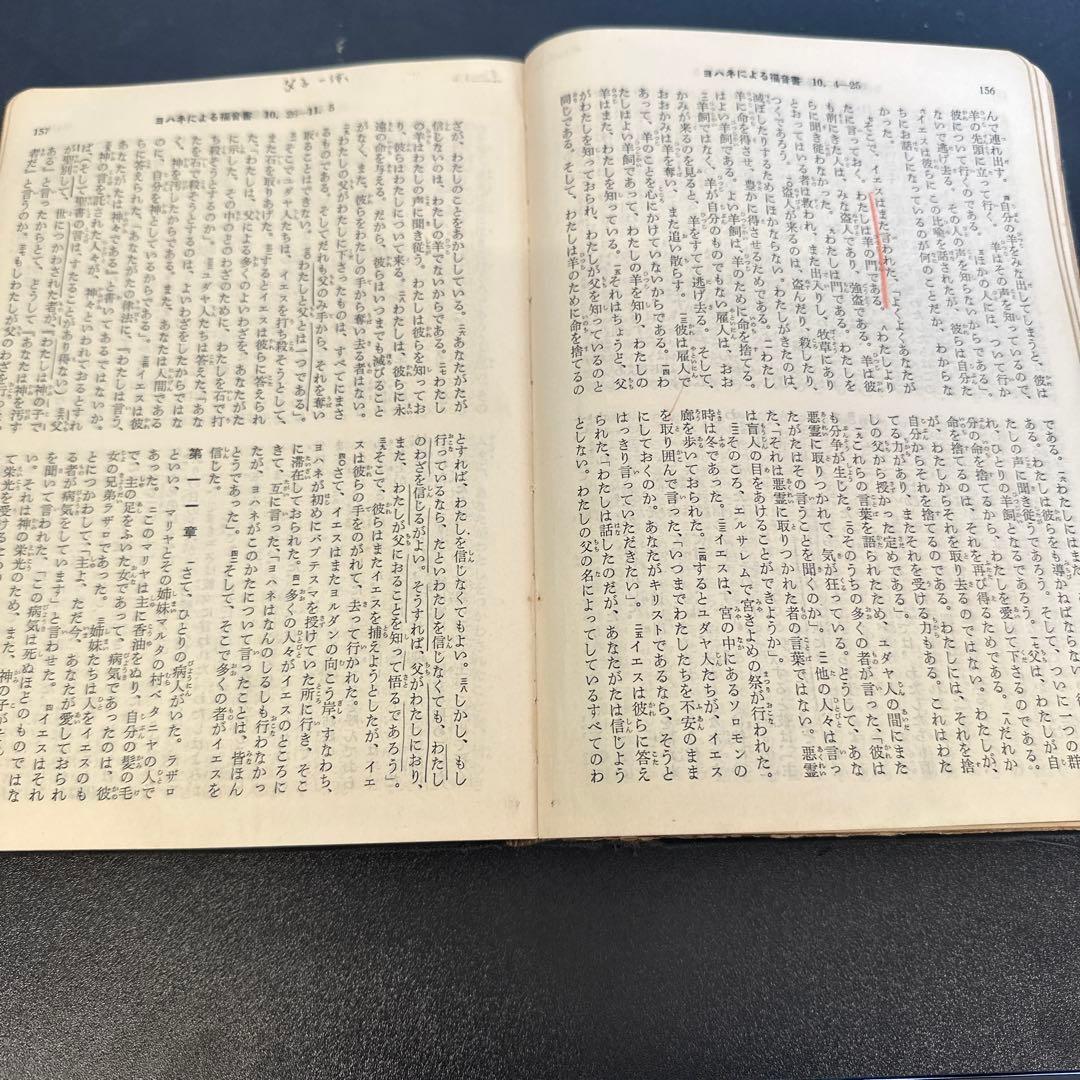 ヨハネによる福音書 10. 4—25
156
んで連れ出す。四自分の羊をみな出してしまうと、彼は
羊の先頭に立って行く。羊はその声を知っているので、
彼について行くのである。五ほかの人には、ついて行か
ないで逃げ去る。その人の声を知らないからである」。
六イエスは彼らにこの比喩を話されたが、彼らは自分た
ちにお話しになっているのが何のことだか、わからな
かった。
七そこで、イエスはまた言われた、「よくよくあなたが
たに言っておく。わたしは羊の門である。八わたしより
も前にきた人は、みな盗人であり、強盗である。羊は彼
らに聞き従わなかった。九わたしは門である。わたしを
とおってはいる者は救われ、また出入りし、牧草にあり
つくであろう。一〇盗人が来るのは、盗んだり、殺したり、
滅ぼしたりするためにほかならない。わたしがきたのは、
羊に命を得させ、豊かに得させるためである。一一わたし
はよい羊飼である。よい羊飼は、羊のために命を捨てる。
一二羊飼ではなく、羊が自分のものでもない雇人は、おお
かみが来るのを見ると、羊をすてて逃げ去る。そして、
おおかみは羊を奪い、また追い散らす。一三彼は雇人で
あって、羊のことを心にかけていないからである。一四わ
たしはよい羊飼であって、わたしの羊を知り、わたしの
羊はまた、わたしを知っている。一五それはちょうど、父
がわたしを知っておられ、わたしが父を知っているのと
同じである。そして、わたしは羊のために命を捨てるの
である。一六わたしにはまた、
彼らも導かねばならない。
たしの声に聞き従うであろう。そして、ついに一つの群
れ、ひとりの羊飼となるであろう。一七父は、わたしが自
分の命を捨てるから、わたしを愛して下さるのである。
命を捨てるのは、それを再び得るためである。一八だれか
が、わたしからそれを取り去るのではない。わたしが、
自分からそれを捨てるのである。わたしには、それを捨
てる力があり、またそれを受ける力もある。これはわた
しの父から授かった定めである」。
一九これらの言葉を語られたため、ユダヤ人の間にまた
も分争が生じた。二〇そのうちの多くの者が言った、「彼は
悪霊に取りつかれて、気が狂っている。どうして、あな
たがたはその言うことを聞くのか」。二一他の人々は言っ
た、「それは悪霊に取りつかれた者の言葉ではない。悪霊
は盲人の目をあけることができようか」。
二二そのころ、エルサレムで宮きよめの祭が行われた。
時は冬であった。二三イエスは、宮の中にあるソロモンの
廊を歩いておられた。二四するとユダヤ人たちが、イエス
を取り囲んで言った、「いつまでわたしたちを不安のまま
にしておくのか。あなたがキリストであるなら、そうと
はっきり言っていただきたい」。二五イエスは彼らに答え
られた、「わたしは話したのだが、あなたがたは信じよう
としない。わたしの父の名によってしているすべてのわ
157
ヨハネによる福音書 10. 26—11. 5
ざが、わたしのことをあかししている。二六あなたがたが
信じないのは、わたしの羊でないからである。二七わたし
の羊はわたしの声に聞き従う。わたしは彼らを知ってお
り、彼らはわたしについて来る。二八わたしは、彼らに永
遠の命を与える。だから、彼らはいつまでも滅びること
がなく、また、彼らをわたしの手から奪い去る者はない。
二九わたしの父がわたしに下さったものは、すべてにまさ
るものである。そしてだれも父のみ手から、それを奪い
取ることはできない。三〇わたしと父とは一つである」。
三一そこでユダヤ人たちは、イエスを打ち殺そうとして、
また石を取りあげた。三二するとイエスは彼らに答えられ
た、「わたしは、父による多くのよいわざを、あなたがた
に示した。その中のどのわざのために、わたしを石で打
ち殺そうとするのか」。三三ユダヤ人たちは答えた、「あな
たを石で殺そうとするのは、よいわざをしたからではな
く、神を汚したからである。また、あなたは人間である
のに、自分を神としているからである」。三四イエスは彼
らに答えられた、「あなたがたの律法に、『わたしは言う、
あなたがたは神々である』と書いてあるではないか。
三五神の言を託された人々が、神々といわれておるとすれ
ば（そして聖書の言は、すたることがあり得ない）三六父
が聖別して、世につかわされた者が、『わたしは神の子で
ある』と言ったからとて、どうして『あなたは神を汚す
者だ』と言うのか。三七もしわたしが父のわざを行
とすれば、わたしを信じなくてもよい。三八しかし、もし
行っているなら、たといわたしを信じなくても、わたし
のわざを信じるがよい。そうすれば、父がわたしにおり、
また、わたしが父におることを知って悟るであろう」。
三九そこで、彼らはまたイエスを捕えようとしたが、イエ
スは彼らの手をのがれて、去って行かれた。
四〇さて、イエスはまたヨルダンの向こう岸、すなわち、
ヨハネが初めにバプテスマを授けていた所に行き、そこ
に滞在しておられた。四一多くの人々がイエスのところに
きて、互に言った、「ヨハネはなんのしるしも行わなかっ
たが、ヨハネがこのかたについて言ったことは、皆ほん
とうであった」。四二そして、そこで多くの者がイエスを
信じた。
第一一章
一さて、ひとりの病人がいた。ラザロ
といい、マリヤとその姉妹マルタの村ベタニヤの人で
あった。二このマリヤは主に香油をぬり、自分の髪の毛
で、主の足をふいた女であって、病気であったのは、彼
女の兄弟ラザロであった。三姉妹たちは人をイエスのも
とにつかわして、「主よ、ただ今、あなたが愛しておられ
る者が病気をしています」と言わせた。四イエスはそれ
を聞いて言われた、「この病気は死ぬほどのものではな
い。それは神の栄光のため、また、神の子が
て栄光を受けるた